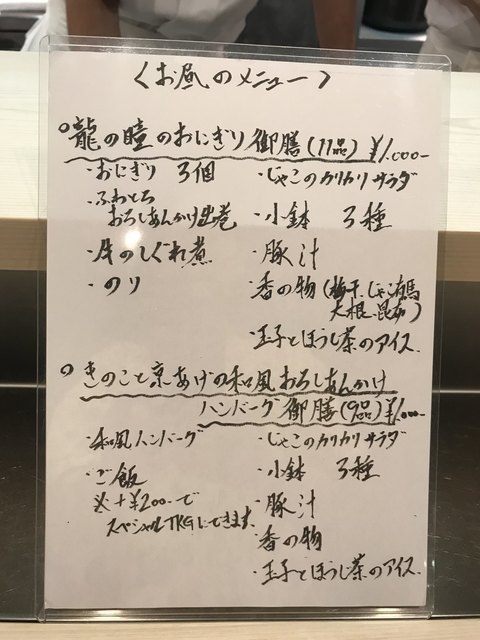 〈お昼のメニュー〉
○龍の瞳のおにぎり御膳(11品)¥1.000-
・おにぎり 3個
・ふわとろ
おろしあんかけ出巻
・牛のしぐれ煮
・のり
・じゃこのカリカリサラダ
・小鉢 3種
・豚汁
・香の物(梅干、じゃこ有馬
大根、昆布)
・玉子とほうじ茶のアイス
○きのこと京あげの和風おろしあんかけ
ハンバーグ御膳(9品)¥1.000-
・和風ハンバーグ
・ご飯
※+¥200-で
スペシャルTKGにできます。
・じゃこのカリカリサラダ
・小鉢 3種
・豚汁
・香の物
・玉子とほうじ茶のアイス